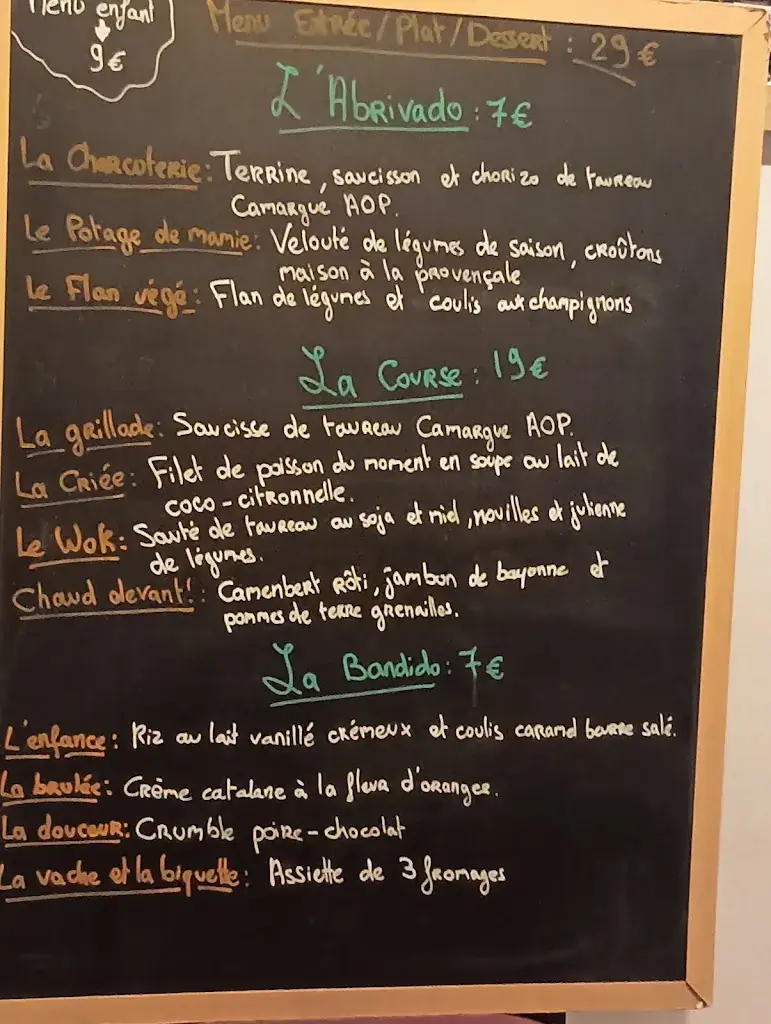 Menu enfant
9€
Menu Entrée/Plat/Dessert : 29€
L'Abrivado : 7€
La Charcuterie : Terrine, saucisson et chorizo de taureau
Camargue AOP.
Le Potage de mamie : Velouté de légumes de saison, croûtons
maison à la provençale
Le Flan végé : Flan de légumes et coulis aux champignons
La Course : 19€
La grillade : Saucisse de taureau Camargue AOP.
La Criée : Filet de poisson du moment en soupe au lait de
coco-citronnelle.
Le Wok : Sauté de taureau au soja et miel, nouilles et julienne
de légumes.
Chaud devant! : Camenbert rôti, jambon de bayonne et
pommes de terre grenailles.
La Bandido : 7€
L'enfance : Riz au lait vanillé crémeux et coulis caramel beurre salé.
La brulée : Crème catalane à la fleur d'oranger.
La douceur : Crumble poire-chocolat
La vache et la biquette : Assiette de 3 fromages